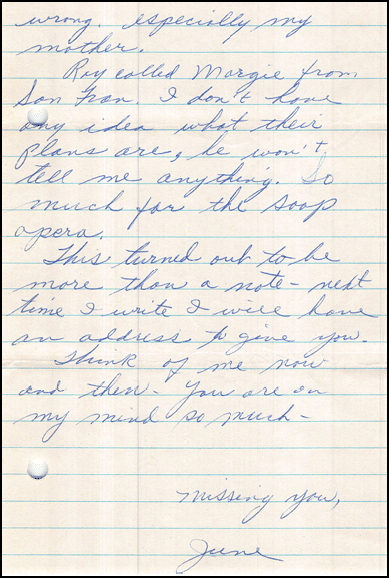 wrong. especially my
mother.
Roy called Margie from
San Fran. I don't have
any idea what their
plans are, he won't
tell me anything. So
much for the soap
opera.
This turned out to be
more than a note - next
time I write I will have
an address to give you.
Think of me now
and then - You are on
my mind so much -
Missing you,
June